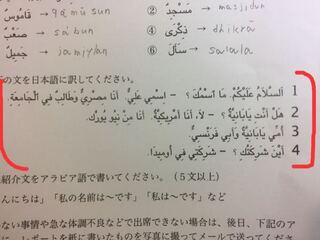 قَامُوسٌ → qāmūsun ② مَسْجِدٌ → masjidun
صَعْبٌ → sa'bun ④ ذِكْرَى → dhikrā
جَمِيلٌ → jamiylan ⑥ سَأَلَ → salala
の文を日本語に訳してください。
1 اَلسَّلَامُ عَلَيْكُمْ. مَا اسْمُكَ؟ – اِسْمِي عَلِيٌّ. أَنَا مِصْرِيٌّ وَطَالِبٌ فِي الْجَامِعَةِ.
2 هَلْ أَنْتِ يَابَانِيَّةٌ؟ – لَا، أَنَا أَمْرِيكِيَّةٌ. أَنَا مِنْ نْيُو يُورْك.
3 أُمِّي يَابَانِيَّةٌ وَأَبِي فَرَنْسِيٌّ.
4 أَيْنَ شَرِكَتُكَ؟ – شَرِكَتِي فِي أُومِيدَا.
紹介文をアラビア語で書いてください。(5文以上)
んにちは」「私の名前は~です」「私は~です」など
ない事情や急な体調不良などで出席できない場合は、後日、下記のア
レポートを紙に書いたものを写真に撮ってメールで送ってくださ